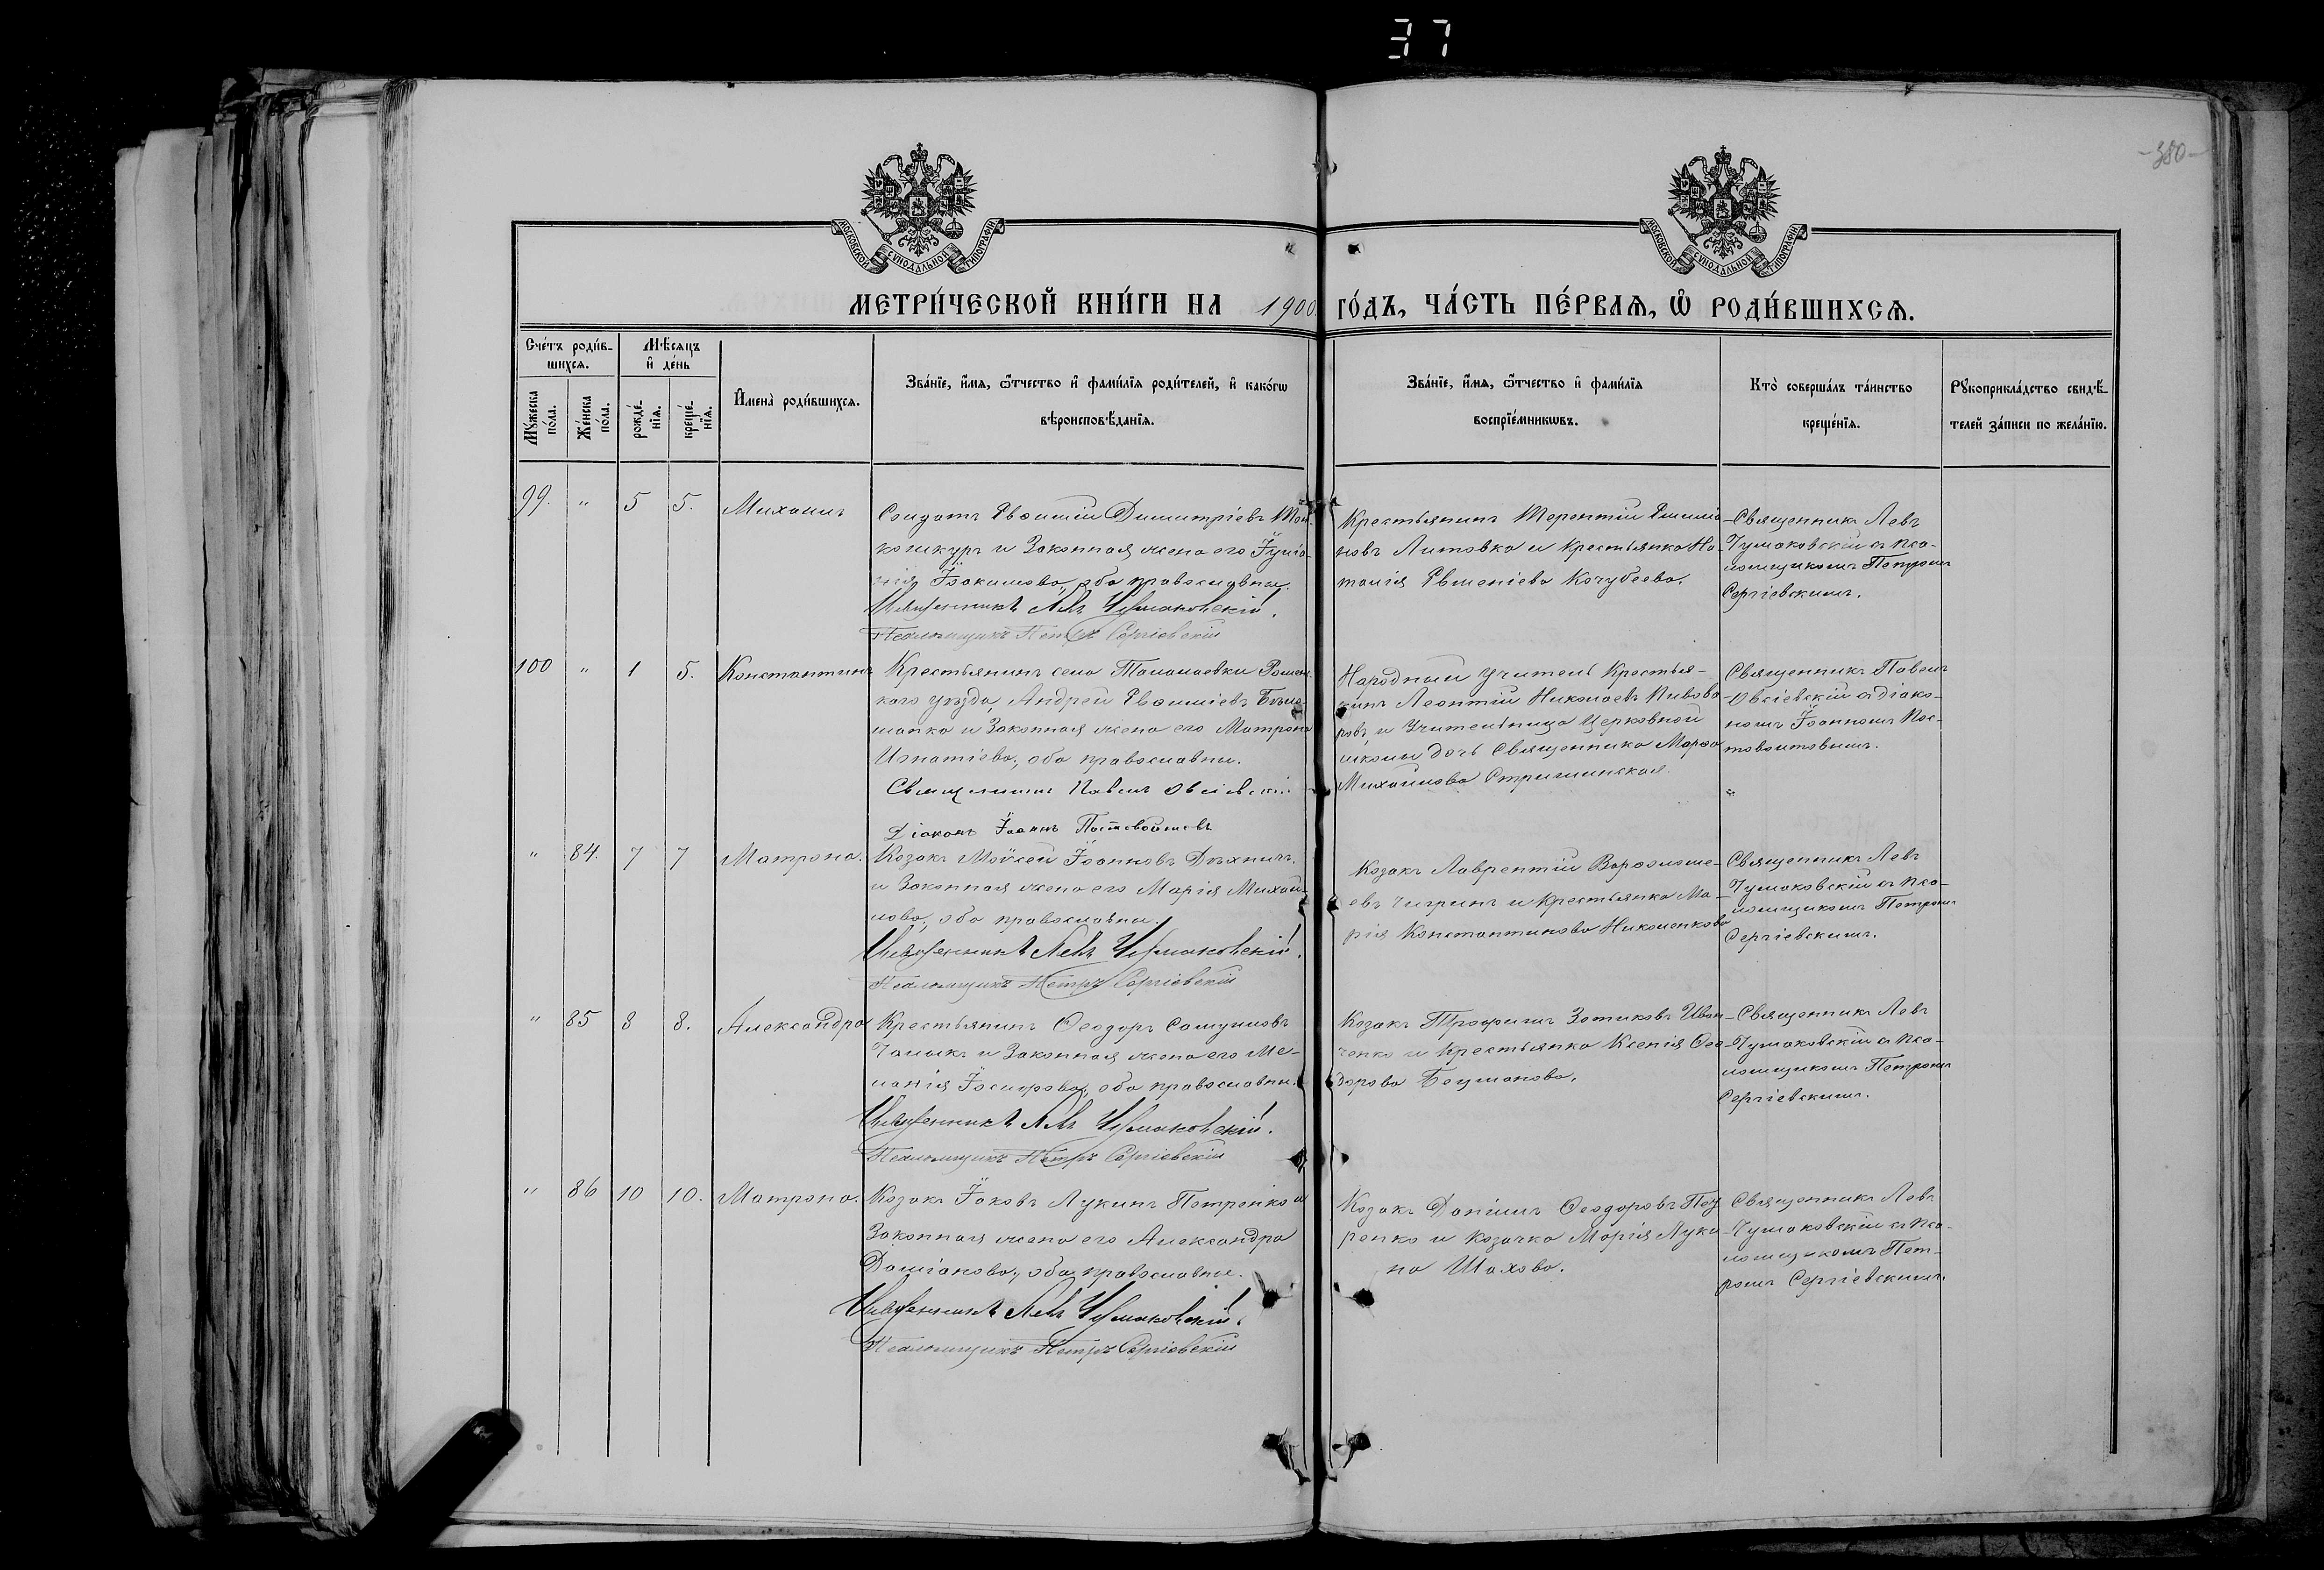 37
-380-
МОСКОВСКОЙ СѴНОДАЛЬНОЙ ТИПОГРАФІИ
МОСКОВСКОЙ СѴНОДАЛЬНОЙ ТИПОГРАФІИ
МЕТРИ́ЧЕСКОЙ КНИ́ГИ НА 1900 ГО́ДЪ, ЧА́СТЬ ПЕ́РВАѦ, Ѡ РОДИ́ВШИХСѦ.
Сче́тъ роди́в-
шихсѧ.
Мꙋ́жеска по́ла.
Же́нска по́ла.
Мѣ́сѧцъ
и҆ де́нь
рожде́-
нїѧ.
креще́-
нїѧ.
И҆мена̀ роди́вшихсѧ.
Зва́нїе, и҆́мѧ, ѻ҆́тчество и҆ фами́лїѧ роди́телей, и҆ како́гѡ
вѣроисповѣ́данїѧ.
Зва́нїе, и҆́мѧ, ѻ҆́тчество и҆ фами́лїѧ
воспрїе́мникѡвъ.
Кто̀ соверша́лъ та́инство
креще́нїѧ.
Рꙋкоприкла́дство свидѣ́-
телей за́писи по жела́нїю.
99. " 5 5. Михаилъ
Солдатъ Евфимій Димитріевъ
и законная жена его
Іоакимова, оба православны.
Священникъ Левъ Чумаковскій.
Псаломщикъ Петръ Сергіевскій
Крестьянинъ Терентій Емилія-
новъ Литовка и крестьянка На-
талія Евменіева Кочубеева.
Священникъ Левъ
Чумаковскій съ пса-
ломщикомъ Петромъ
Сергіевскимъ.
100 " 1 5. Константинъ
Крестьянинъ села Талалаевки Ромен-
каго уѣзда, Андрей Евфиміевъ
и законная жена его Матрона
Игнатіева, оба православны.
Священникъ Павелъ Овсіевскій
Діаконъ Іоаннъ Постовойтовъ
Народный учитель крестья-
нинъ Леонтій Николаевъ Пивова-
ровъ и учительница церковной
школы дочь священника Марѳа
Михайлова
Священникъ Павелъ
Овсіевскій съ діако-
номъ Іоанномъ Пос-
товойтовымъ.
" 84. 7 7 Матрона.
Козакъ Мойсей Іоанновъ
и законная жена его Марія Михай-
лова, оба православны.
Священникъ Левъ Чумаковскій.
Псаломщикъ Петръ Сергіевскій
Козакъ Лаврентій Варѳоломе-
евъ Чигринъ и крестьянка Ма-
рія Константинова Николенкова
Священникъ Левъ
Чумаковскій съ пса-
ломщикомъ Петромъ
Сергіевскимъ.
" 85 8 8. Александра
Крестьянинъ Ѳеодоръ Самуиловъ
и законная жена его Ме-
ланія Іосифова, оба православны.
Священникъ Левъ Чумаковскій.
Псаломщикъ Петръ Сергіевскій
Козакъ Трофимъ Зотиковъ Иван-
ченко и крестьянка Ксенія Ѳео-
дорова
Священникъ Левъ
Чумаковскій съ пса-
ломщикомъ Петромъ
Сергіевскимъ.
" 86 10 10. Матрона.
Козакъ Іаковъ Лукинъ Петренко и
законная жена его Александра
Даміанова, оба православные.
Священникъ Левъ Чумаковскій.
Псаломщикъ Петръ Сергіевскій
Козакъ Даніилъ Ѳеодоровъ
и козачка Марія Луки-
на Шахова.
Священникъ Левъ
Чумаковскій съ пса-
ломщикомъ Пет-
ромъ Сергіевскимъ.